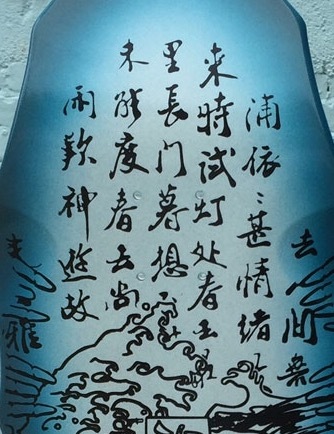 去间
浦依〻甚情绪
来時试灯处春去
里長门暮想
未能度春去尚
闹歎神游故
雅